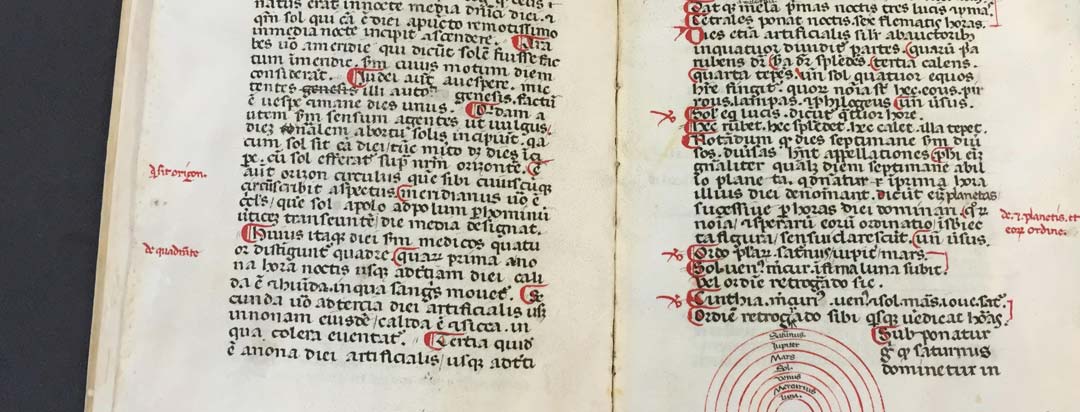 natus erat in nocte media dnici diei. ⁊
qm̄ sol qui cā ē diei a puncto remotissimo
in media nocte incipit ascendere. Ara
bes uō a meridie qui dicūt solē fuisse fac
tum in meridie. s̄m cuius motum diem
considerāt. Iudei aūt a uespere. inīc
tentes genesis illi auto. genesis. factū
ē uespe ⁊ mane dies unus.
tem s̄m sensum agentes ut uulgus
diez ab ortu solis incipiūt. qa
cum sol sit cā diei
pe. cū sol effert̄ sup nr̄m orizonte. ē
aūt orizon circulus que sibi cuiuscūq
circūscribit aspectus. meridianus uō ē
circls que sol a polo ad polum p hominū
uitices transeunte die media designat.
Huius itaq diei s̄m medicos quatu
or distigunt quadre. quar prima a no
na hora noctis usq ad tciam diei cali
da ē ⁊ huida. in qua sangs mouet. Se
cunda uō ad tercia diei artificialis usq
in nonam eiusdē calida ē ⁊ sicca. in
qua colera euentat. Tertia quid
ē a nona diei artificialis usq ad tci
q sit orizon.
de quadrāte
dat q̄ mela p̄mas noctis tres lucis
Cetrales ponat noctis sex flematic horas.
Dies etiā artificialis silr ab auctorib
in quatuor diuidit̄ partes. quarū p̄a
rubens dr̄. s̄a dr̄ splēdēs. tertia calens.
quarta tepēs. un̄ sol quatuor equos
hre fingit. quor noīa sūt hec. eous. pir
rous. lampas. ⁊ philogeus. un̄ ūsus.
Sol eq lucis. dicūt q̄tuor hore.
Hec rubet. hec splēdet. hec calet. illa tepet.
Notādum q dies septimane s̄m diū
sos. diuīsas hn̄t appellationes. Phi eīz
gnaliter qualz diem septimane ab il
lo planeta. dominatur ī prima hora
illius diei denominant. Dicūt eīz planetas
sucessiue p horas diei dominari. qr̄
noīa ⁊ sperarū eorū ordinatio isbiec
ta figura sensui clarescūt. un̄ ūsus.
Ordo plar. saturn iupit mars.
Sol uen mercur infima luna subit.
Vel ordine retrogado sic.
Cinthia. mcuri. uen ⁊ sol mars ioue. sat
Ordiē retrogado sibi qsq uēdicat horas.
Sub ponatur
gr̄ q saturnus
dominetur in
de. 7. planetis. et
eor ordine.
Saturnus
Jupiter
Mars
Sol
Venus
Mercurius
luna